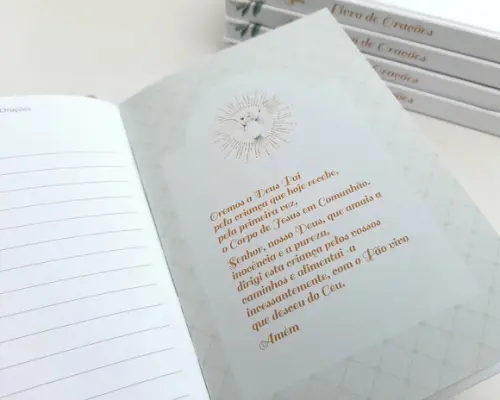 Livro de Orações
de Orações
de Orações
Orações
Orações
Oremos a Deus Pai
pela criança que hoje recebe,
pela primeira vez,
o Corpo de Jesus em Comunhão.
Senhor, nosso Deus, que amais a
inocência e a pureza,
dirigi esta criança pelos vossos
caminhos e alimentai-a
incessantemente, com o Pão vivo
que desceu do Céu.
Amém